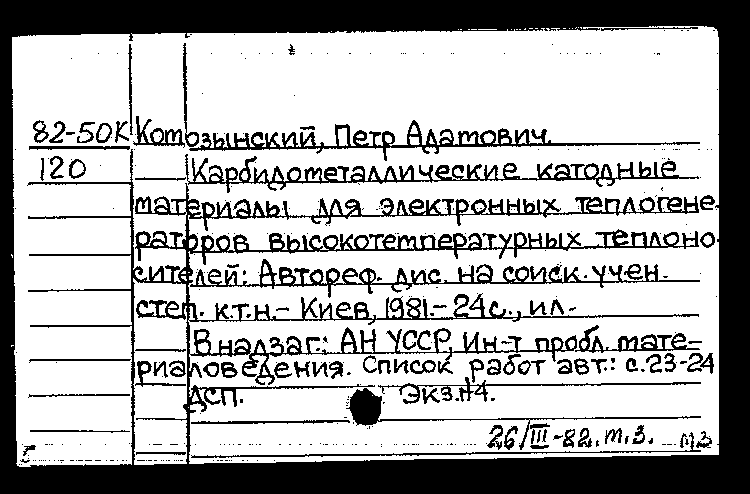 82-50К Котозынский, Петр Адатович.
120 Карбидометаллические катодные
материалы для электронных теплогене-
раторов высокотемпературных теплоно-
сителей: Автореф. дис. на соиск. учен.
степ. к.т.н.- Киев, 1981.- 24с., ил.-
В надзаг.: АН УССР, Ин-т пробл. мате-
риаловедения. Список работ авт.: с.23-24
ДСП. Экз.№4.
26/III-82. т.3. м3